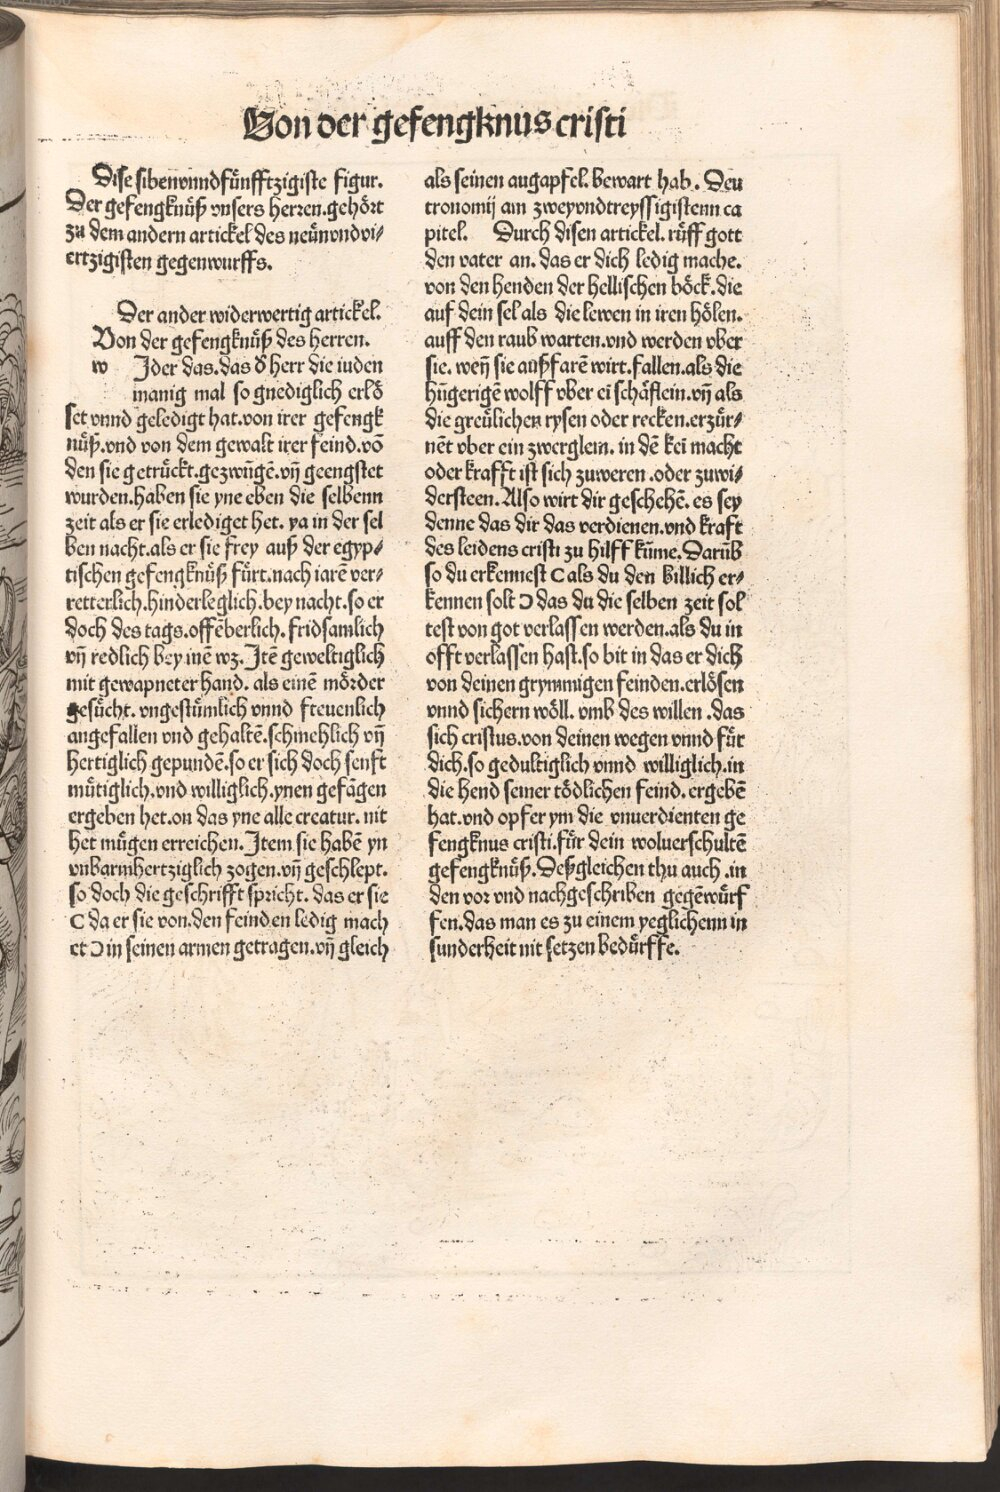 Von der gefengknus cristi
Dise sibenvnndfünfftzigiste figur.
Der gefengknüß vnsers herren.gehört
zu dem andern artickel des neünvndvi-
ertzigisten gegenwurffs.
Der ander widerwertig artickel.
Von der gefengknüß des herren.
w Jder das.das d᷎ herr die iuden
manig mal so gnediglich erlö
set vnnd geledigt hat.von irer gefengk
nüß.vnd von dem gewalt irer feind.vō
den sie getrückt.gezwūgē.vn̄ geengstet
wurden.haben sie yne eben die selbenn
zeit als er sie erlediget het. ya in der sel
ben nacht.als er sie frey auß der egyp-
tischen gefengknüß fürt.nach iarē ver-
retterlich.hinderleglich.bey nacht.so er
doch des tags.offēberlich.fridsamlich
vn̄ redlich bey inē wz. Jtē geweltiglich
mit gewapneter hand. als einē mörder
gesücht. vngestümlich vnnd freuenlich
angefallen vnd gehaltē.schmehlich vn̄
hertiglich gepundē.so er sich doch senft
mütiglich.vnd williglich.ynen gefāgen
ergeben het.on das yne alle creatur. nit
het mügen erreichen. Jtem sie habē yn
vnbarmhertziglich zogen.vn̄ geschlept.
so doch die geschrifft spricht. das er sie
C da er sie von.den feinden ledig mach
et Ɔ in seinen armen getragen.vn̄ gleich
als seinen augapfel. bewart hab. Deu
tronomij am zweyvndtreyssigistenn ca
pitel. Durch disen artickel. rüff gott
den vater an. das er dich ledig mache.
von den henden der hellischen böck. die
auf dein sel als die lewen in iren hölen.
auff den raub warten.vnd werden vber
sie. wen̄ sie außfarē wirt. fallen.als die
hūgerigē wolff vber ei schäflein.vn̄ als
die greülichen rysen oder recken.erzür-
nēt vber ein zwerglein. in dē kei macht
oder krafft ist sich zuweren .oder zuwi-
dersteen. Also wirt dir geschehē. es sey
denne das dir das verdienen.vnd kraft
des leidens cristi zu hilff kūme. Darūb
so du erkennest C als du den billich er-
kennen solt Ɔ das du die selben zeit sol
test von got verlassen werden.als du in
offt verlassen hast.so bit in das er dich
von deinen grymmigen feinden.erlösen
vnnd sichern wöll. vmb des willen .das
sich cristus.von deinen wegen vnnd für
dich.so gedultiglich vnnd williglich.in
die hend seiner tödlichen feind. ergebē
hat.vnd opfer ym die vnuerdienten ge
fengknus cristi.für dein wolverschultē
gefengknüß. Deßgleichen thu auch .in
den vor vnd nachgeschriben gegēwürf
fen.das man es zu einem yeglichenn in
sunderheit nit setzen bedürffe.